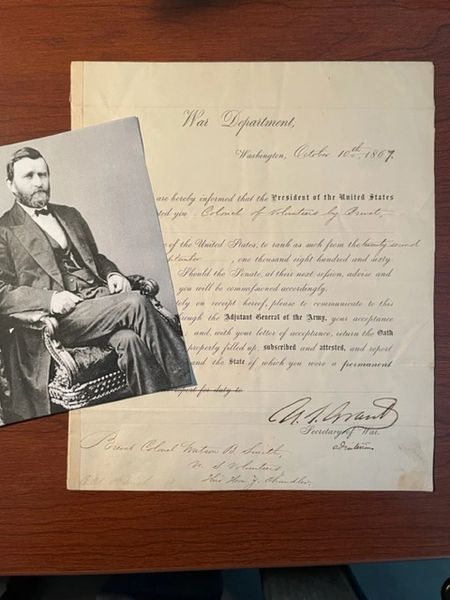 War Department,
Washington, October 10th, 1867.
are hereby informed that the President of the United States
ted you Colonel of Volunteers by Brevet,
of the United States, to rank as such from the twenty second
ptember , one thousand eight hundred and sixty
Should the Senate, at their next session, advise and
you will be commissioned accordingly.
tely on receipt hereof, please to communicate to this
rough the Adjutant General of the Army, your acceptance
and, with your letter of acceptance, return the Oath
properly filled up, subscribed and attested, and report
and the State of which you were a permanent
report for duty to
U. S. Grant
Secretary of War
Brevet Colonel Watson B. Smith,
U. S. Volunteers,
Thro Hon Z. Chandler.